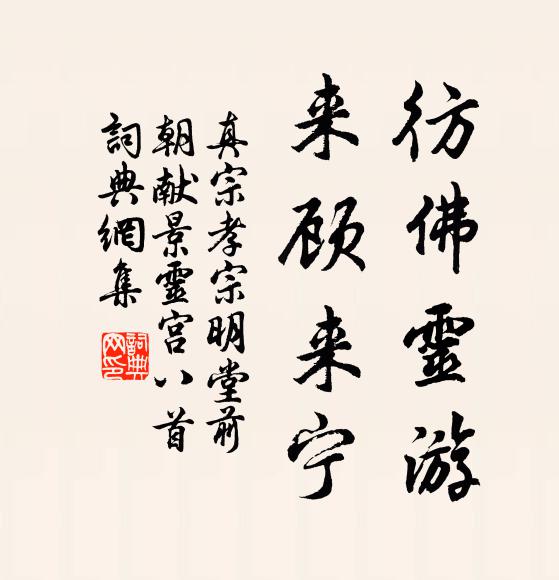 彷佛靈游
来顾来宁
真宗孝宗明堂前
朝献景靈宫八首
詞典網集
詞典网印